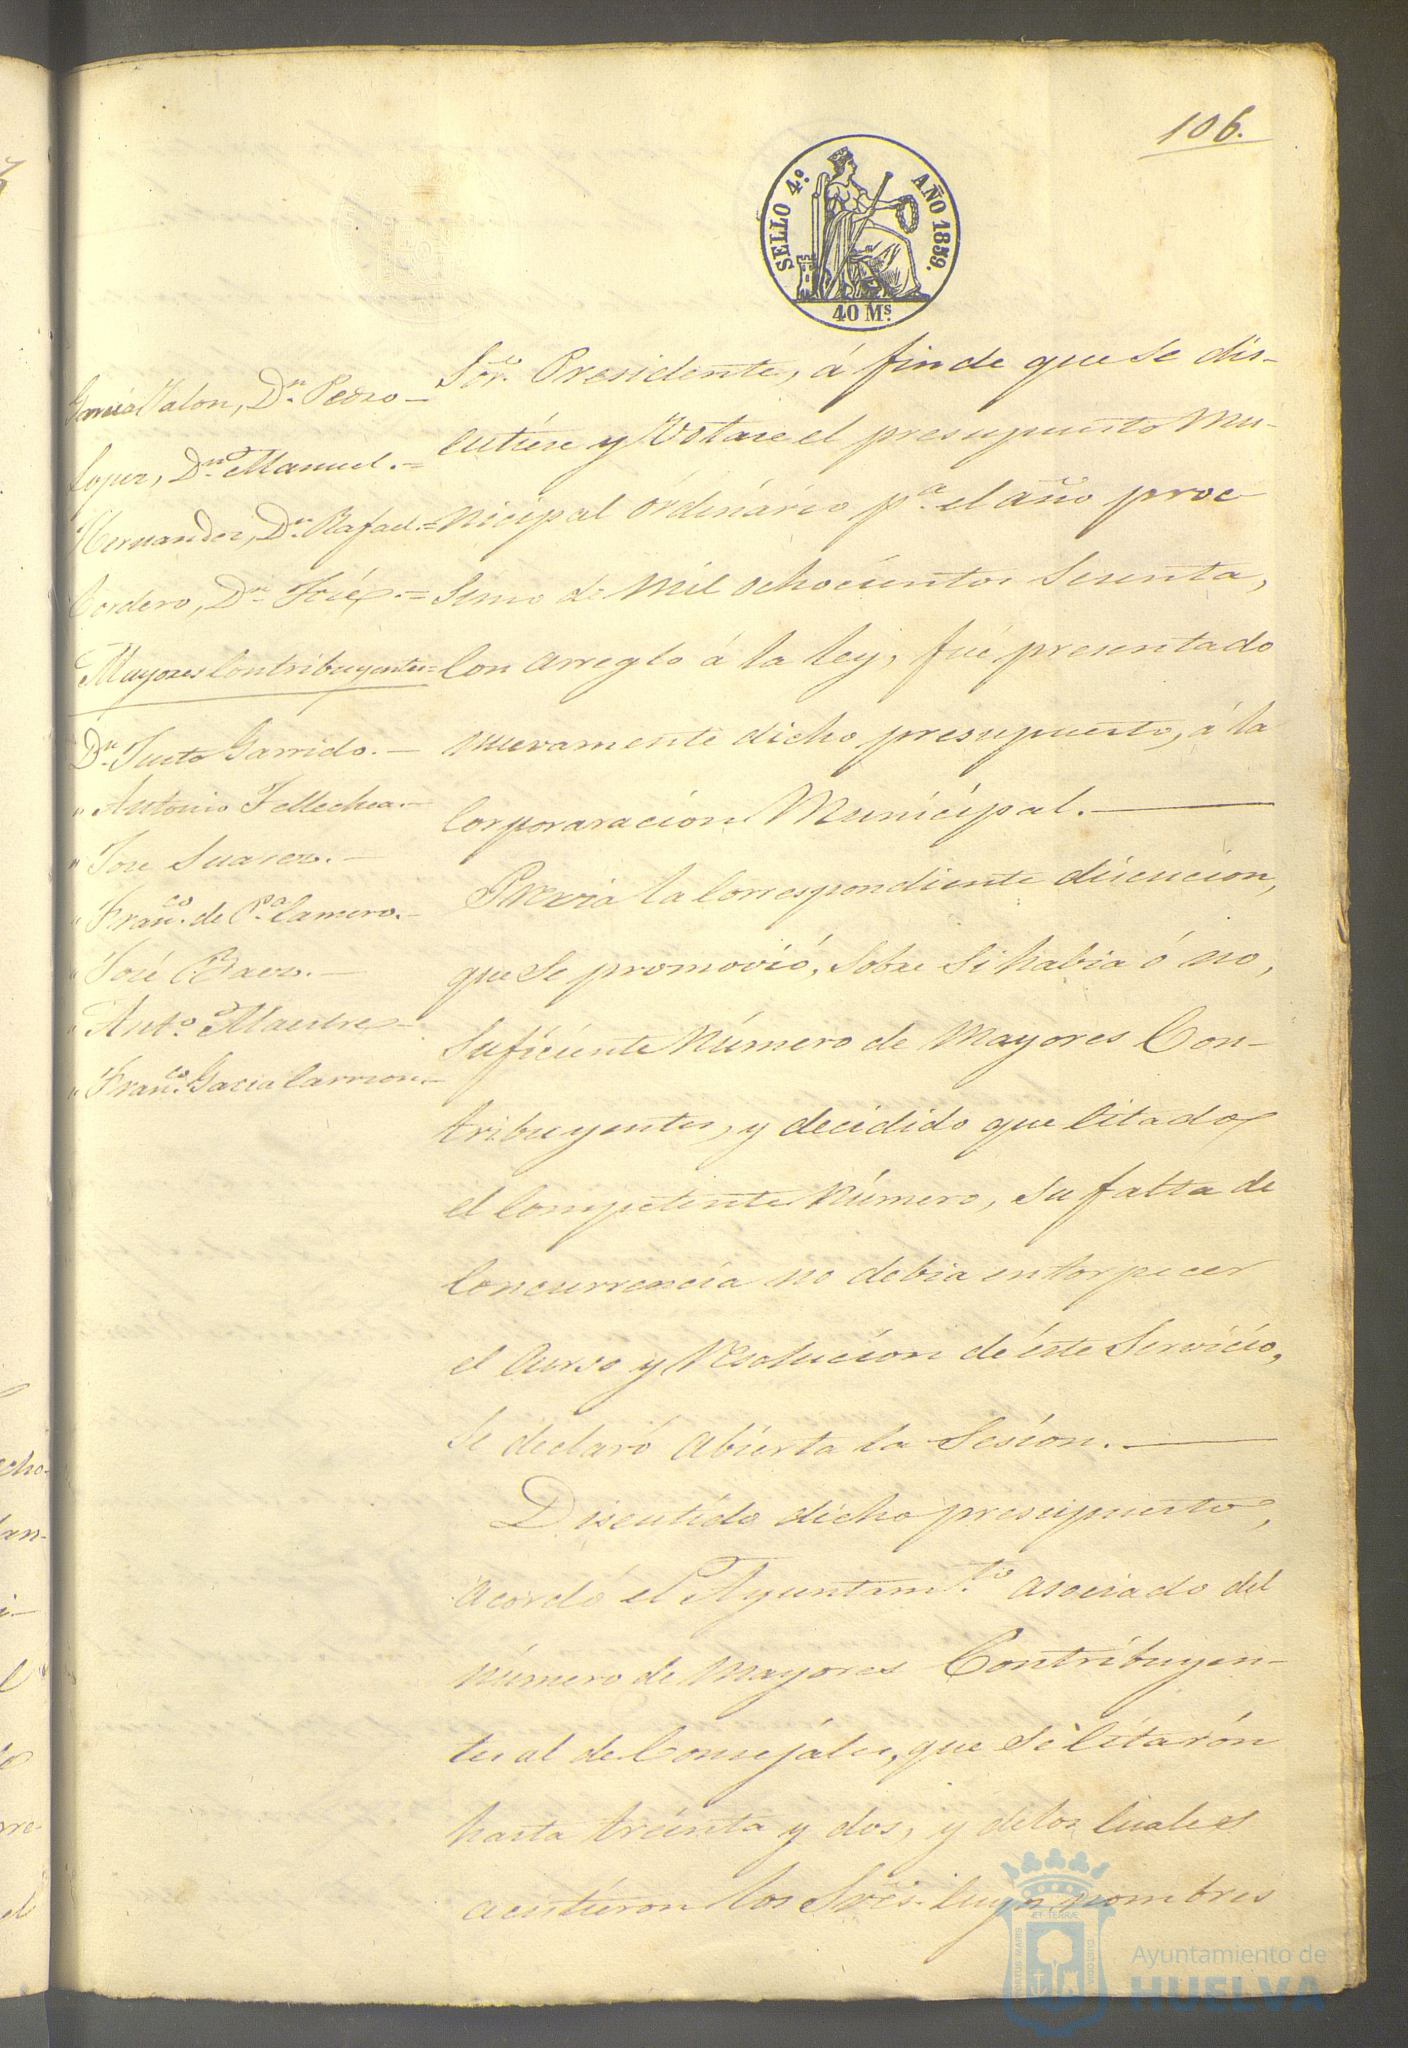 106.
SELLO 4º. AÑO 1859.
40 Ms.
García Valon, Dn. Pedro
Lopez, Dn. Manuel. =
Hernandez, Dn. Rafael. =
Cordero, Dn. José. =
Mayores Contribuyentes =
Dn. Justo Garrido. —
" Antonio Tellechea. —
" Jose Suarez. —
" Franco. de Pa. Camero. —
" José Baez. —
" Anto. Maestre —
" Franco. Gacia Carrion. —
Sor. Presidente, á fin de que se dis-
cutiese y Votase el presupuesto Mu-
nicipal órdinário pa. el año proc
simo de Mil ochocientos sesenta,
Con arreglo á la ley, fué presentado
nuevamente dicho presupuesto, á la
Corporaracion Municipal. —
Prévia la Correspondiente discucion,
que se promovió, sobre si habia ó no,
Suficiente Número de Mayores Con-
tribuyentes, y decidido que Citado
el Competente Número, su falta de
Concurrencia no debia entorpecer
el Curso y Resolucion de éste Servicio,
Se declaró abierta la Sesion. —
Discutido dicho presupuesto,
acordó el Ayuntamto. asociado del
número de Mayores Contribuyen-
tes al de Consejáles, que se Citarón
hasta tréinta y dos, y de los Cuales
acistieron los Sres. Cuyos nombres
Ayuntamiento de
HUELVA